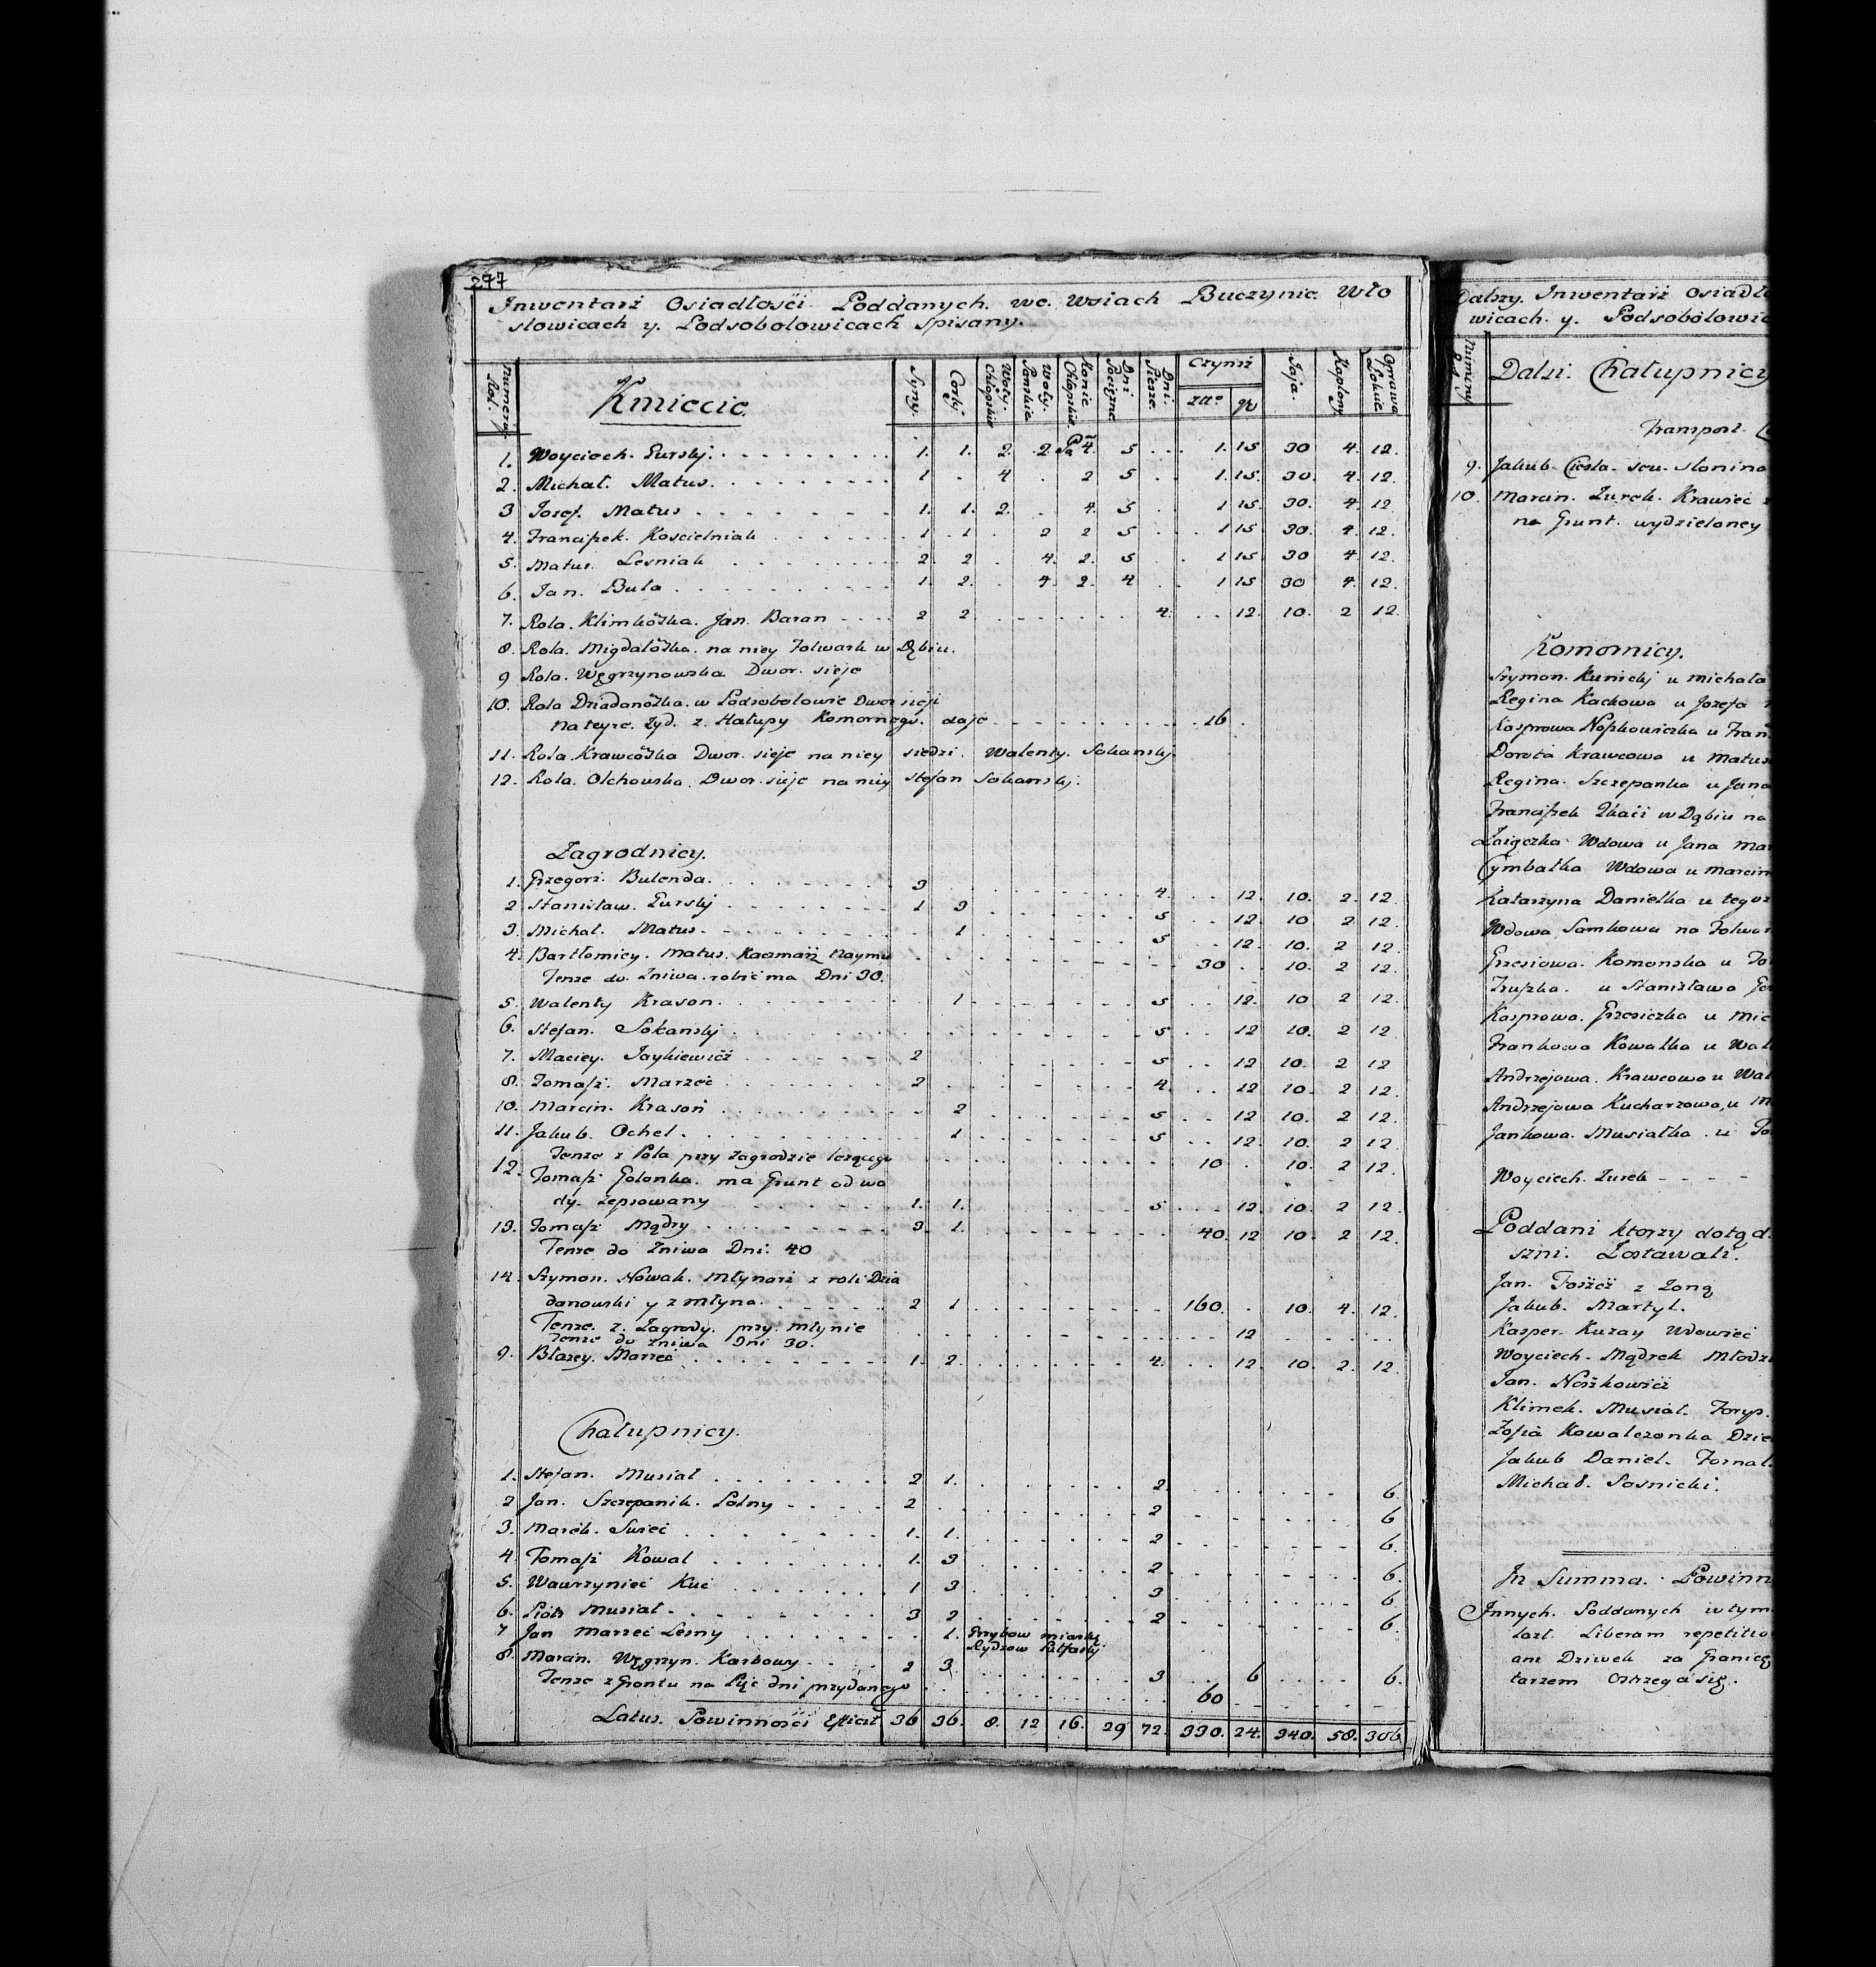 277
Inwentarz Osiadłosci Poddanych we Wsiach Buczynie Wło
słowicach y Podsobolowicach Spisany.
Numery Rol. Kmiecie. Syny. Corky Woły Chłopskie Woły Panskie Konie Chłopskie Dni Dni Piesze. Czynsz złłe gr Jaja. Kapłony Oprawa Łokcie
1. Woyciech Gurskj. 1. 1. 2. 2. 4. 5 1. 15 30 4. 12.
2. Michał. Matus. 1 4 2 5 1. 15. 30. 4. 12.
3 Jozef. Matus 1. 1. 2. 4. 5 1 15. 30. 4. 12.
4. Franciszek. Koscielniak 1 1 2 2 5 1 15 30. 4. 12.
5. Matus. Lesniak 2. 2 4. 2. 5 1 15. 30 4. 12.
6. Jan. Buła 1. 2. 4. 2. 4 1 15 30 4. 12.
7. Rola. Klimkoska. Jan Baran 2 2 4. 12. 10. 2 12.
8. Rola. Migdałoska. na niey Folwark w Dębiu.
9 Rola. Węgrzynowska Dwor. sieje
10. Rola Dziadanoska. w Podsobolowie Dwor sieji
Na teyze. Zyd. z. Hałupy Komornego. daje 16
11. Rola Krawcoska Dwor. sieje na niey siedzi. Walenty. Sokanskj.
12. Rola. Olchowska. Dwor. sieje na niey Stefan Sokanskj.
Zagrodnicy.
1. Grzegorz. Bulenda. 3 4. 12. 10. 2. 12.
2 Stanisław. Gurskj 1 3 5 12. 10 2 12.
3. Michał. Matus. 1 5 12. 10. 2 12.
4. Bartłomiey. Matus. Kaczmarz Naymu 30 10. 2 12.
Tenze do Zniwa robic ma Dni 30.
5. Walenty Krason. 1 5 12. 10 2 12.
6. Stefan. Sokanskj 5 12 10. 2 12
7. Maciey. Jaykiewicz 2 5 12 10. 2 12
8. Tomasz. Marzec 2 4. 12 10. 2 12.
10. Marcin. Krason 2 5 12 10. 2 12.
11. Jakub. Ochel. 1 5 12. 10. 2 12.
Tenze z Pola przy Zagrodzie lezącego 10 10. 2 12.
12. Tomasz Golonka. ma Grunt od wo
dy. Zepsowany 1. 1. 5 12. 10. 2 12.
13. Tomasz Mądry 3. 1. 40. 12 10. 2 12.
Tenze do Zniwa Dni. 40
14. Szymon. Nowak. Młynarz z roli Dzia
danowski y z Młyna. 2 1 160. 10. 4. 12.
Tenze. z. Zagrody. przy. Młynie 12
Tenze do Zniwa Dni 30.
9. Błazey. Marzec 1. 2. 4. 12. 10. 2. 12.
Chałupnicy.
1. Stefan. Musiał 2 1. 2. 6.
2 Jan. Szczepanik. Polny 2 2 6
3. Marek. Swiec 1. 1. 2 6.
4 Tomasz Kowal 1. 3 2 6.
5. Wawrzyniec Kuc 1 3 3 6
6. Piotr Musiał 3 2 2 6.
7 Jan Marzec Lesny 1.
8. Marcin. Węgrzyn. Karbowy 2 3 3 6 6.
Tenze z Grontu na Pięc dni przydanego 60
Latus. Powinnosci Efficit 36 36. 8. 12 16. 29 72. 330. 24. 340. 58. 306
Dalszy. Inwentarz Osiadło
wicach. y. Podsobolowic
Numery Dalsi. Chałupnicy
Transport.
9. Jakub. Ciesla. seu. Słonina
10. Marcin. Zurek. Krawiec
na Grunt. wydzieloney
Komornicy.
Szymon. Kunickj u Michała
Regina Kachowa u Jozefa
Kasprowa Nopkowiczka u Fran
Dorota Krawcowa u Matus
Regina. Szczepanka u Jana
Franciszek Tkacz w Dąbiu na
Zaięczka Wdowa u Jana Mar
Cymbałka Wdowa u Marcin
Katarzyna Danielka u tegoz
Wdowa Samkowa na Folwar
Grzesiowa. Komonska u
u Stanisława
Kasprowa. Grzesiczka u Mic
Frankowa Kowalka u Wal
Andrzejowa. Krawcowa u Wal
Andrzejowa Kucharzowa, u M
Jankowa. Musiałka. u
Woyciech. Zurek
Poddani ktorzy dotąd.
szni. Zostawali.
Jan. z Zoną
Jakub. Martyl.
Kasper. Kuzay Wdowiec
Woyciech. Mądrek Młodzi
Jan. Noszkowicz
Klimek. Musiał. Foryz.
Zofia Kowalczonka Dzie
Jakub Daniel. Fornal.
Michał. Sosnicki.
In Summa. Powinn
Innych. Poddanych w tym
Liberam repetitio
ani Dziwek za Granicę
tarzem Ostrzega się.